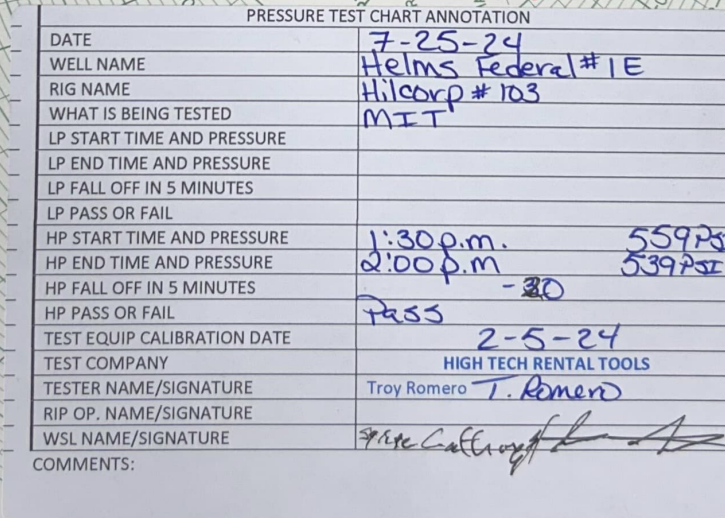 PRESSURE TEST CHART ANNOTATION
DATE 7-25-24
WELL NAME Helms Federal #1E
RIG NAME Hilcorp #103
WHAT IS BEING TESTED MIT
LP START TIME AND PRESSURE
LP END TIME AND PRESSURE
LP FALL OFF IN 5 MINUTES
LP PASS OR FAIL
HP START TIME AND PRESSURE 1:30 p.m. 559 PS
HP END TIME AND PRESSURE 2:00 p.m 539 PSI
HP FALL OFF IN 5 MINUTES
HP PASS OR FAIL Pass
TEST EQUIP CALIBRATION DATE 2-5-24
TEST COMPANY HIGH TECH RENTAL TOOLS
TESTER NAME/SIGNATURE Troy Romero T. Romero
RIP OP. NAME/SIGNATURE
WSL NAME/SIGNATURE
COMMENTS: